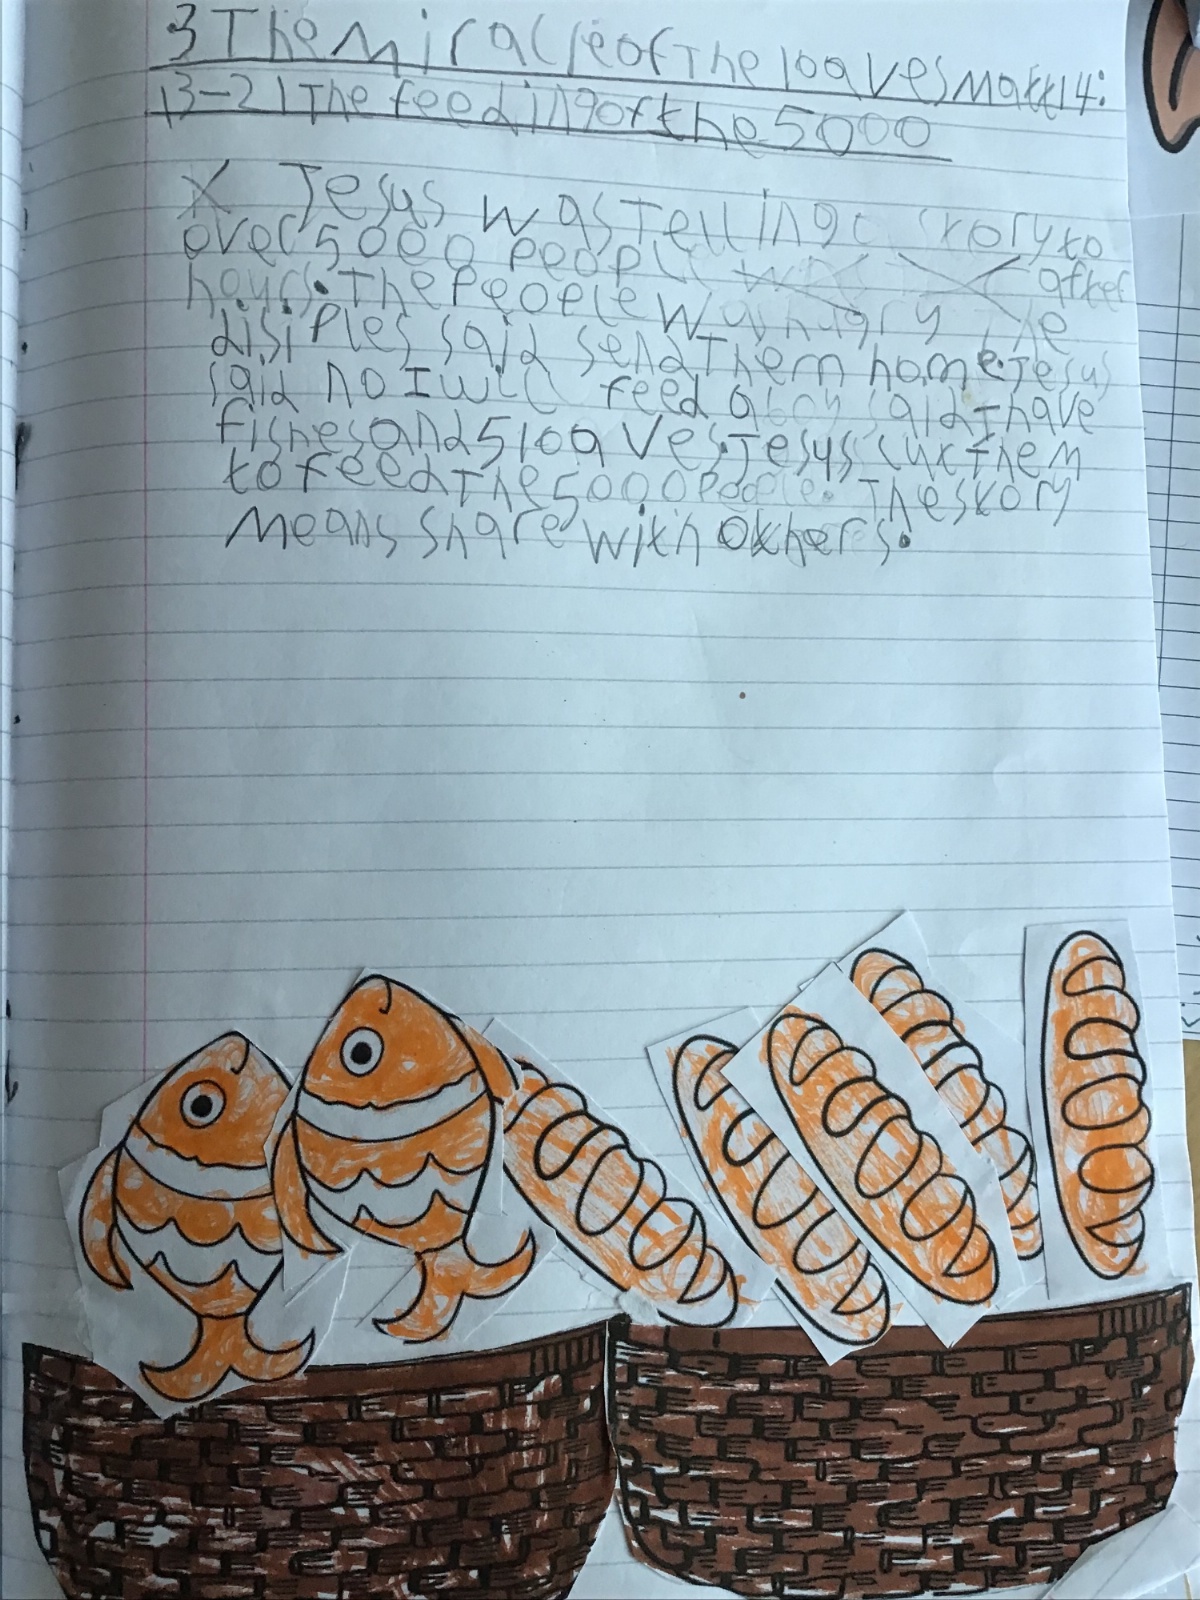 3 The Miracle of The loaves Matt 14:
13-21 The feeding of the 5000
X Jesus was Telling a story to
over 5000 people after
hours. The people was hugry The
disiples said send Them home. Jesus
said no I will feed a boy said I have
fishes and 5 loaves. Jesus cut them
to feed The 5000 people. The story
Means share with others.